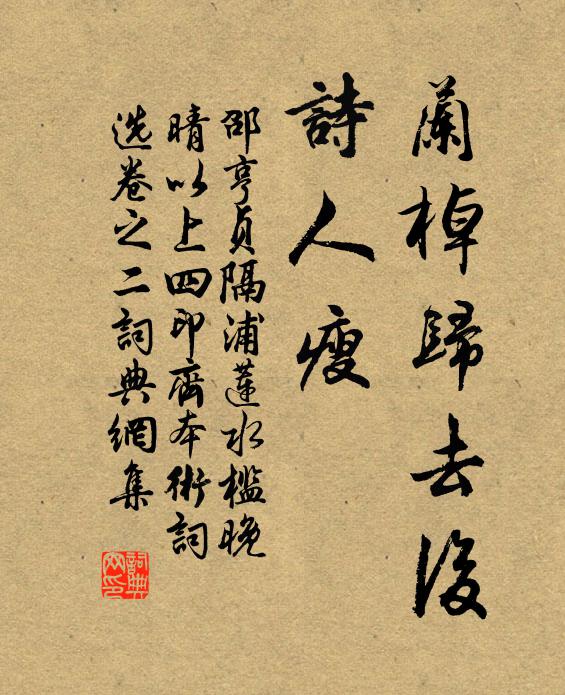 蘭棹歸去後
詩人瘦
邵亨貞隔浦蓮水檻晚
晴以上四印齋本術詞
选卷之二詞典網集
詞典
网印